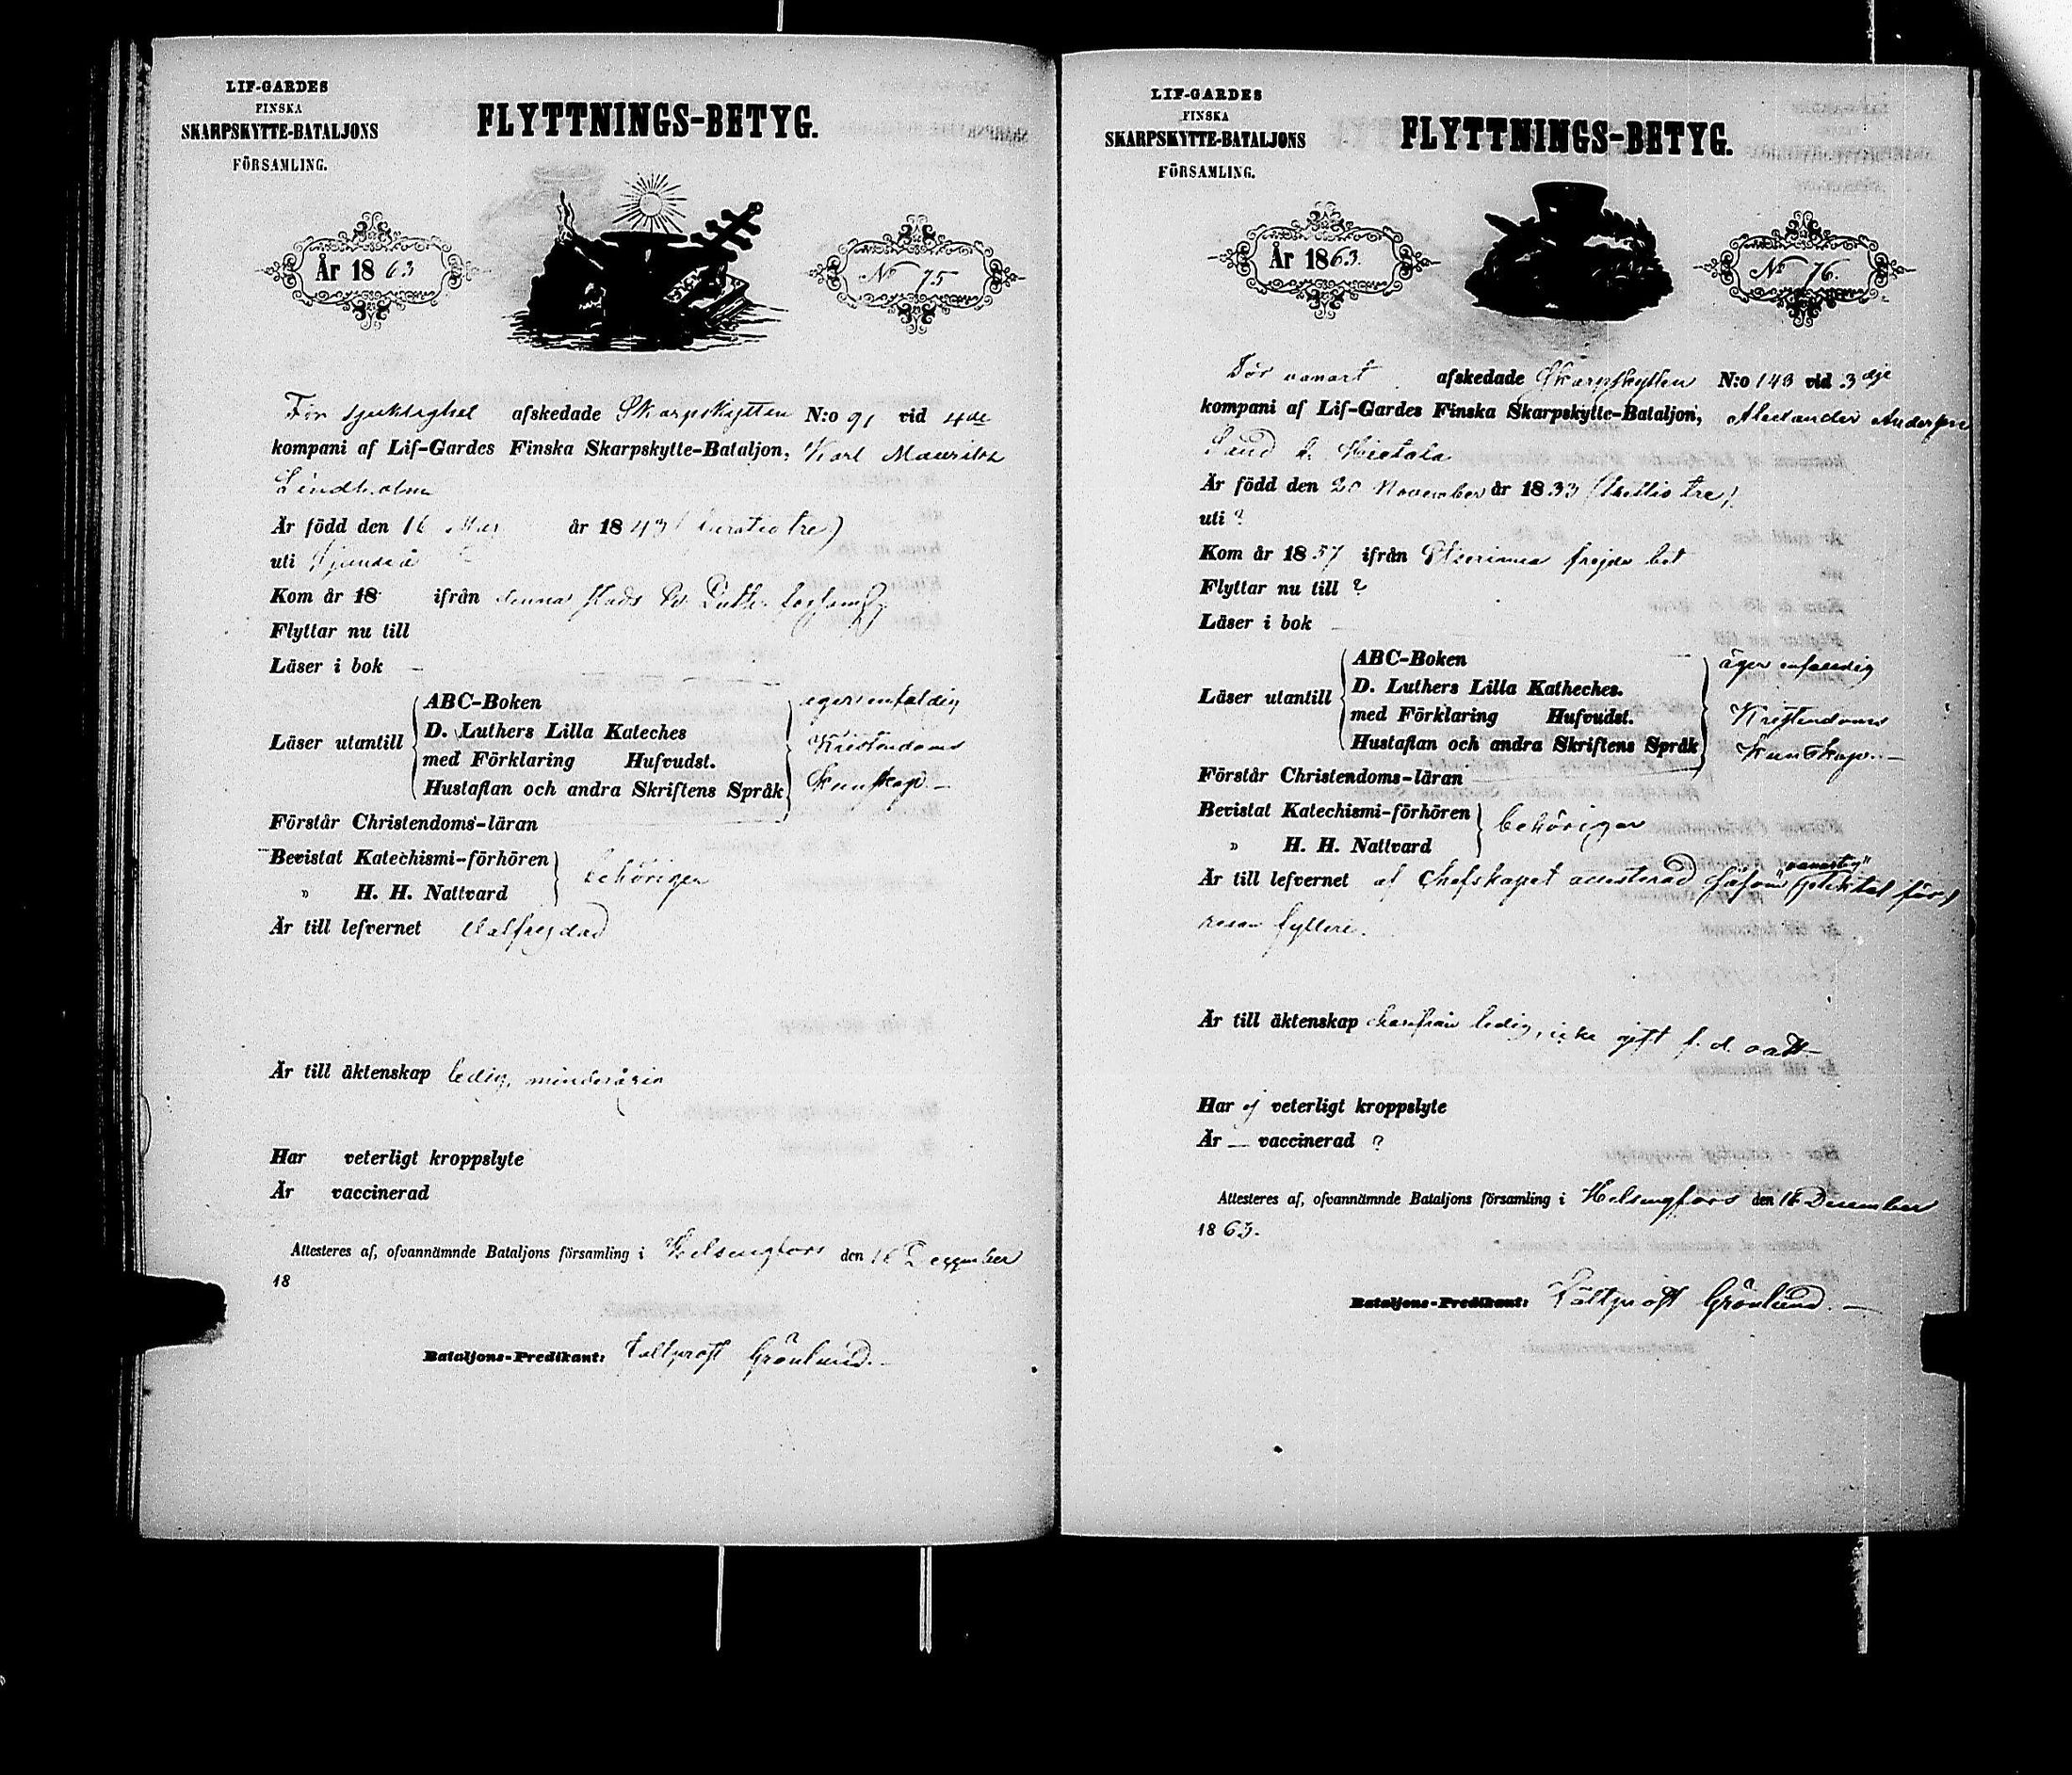 LIF-GARDES
FINSKA
SKARPSKYTTE-BATALJONS
FÖRSAMLING.
FLYTTNINGS-BETYG.
År 1863
No 75
För sjuklighet afskedade Skarpskytten N:o 91 vid 4de
kompani af Lif-Gardes Finska Skarpskytte-Bataljon, Karl Mauritz
Lindholm
Är född den 16 år 1843 (tre)
uti Sjundeå
Kom år 18 ifrån denna stads
Flyttar nu till
Läser i bok —
Läser utantill
ABC-Boken
D. Luthers Lilla Kateches
med Förklaring Hufvudst.
Hustaflan och andra Skriftens Språk
eger enfaldig
Kristendoms
Kunskap. —
Förstår Christendoms-läran
Bevistat Katechismi-förhören
" H. H. Nattvard
behörigen
Är till lefvernet välfrejdad
Är till äktenskap ledig, minderårig
Har veterligt kroppslyte
Är vaccinerad
Attesteres af, ofvannämnde Bataljons församling i Helsingfors den 16 December
18
Bataljons-Predikant: Fältprost Grönlund. —
LIF-GARDES
FINSKA
SKARPSKYTTE-BATALJONS
FÖRSAMLING.
FLYTTNINGS-BETYG.
År 1863.
No 76.
För vanart afskedade Skarpskytten N:o 143 vid 3dje
kompani af Lif-Gardes Finska Skarpskytte-Bataljon, Alexander Andersson
Sund
Är född den 20 November år 1833 (trettio tre)
uti ?
Kom år 1857 ifrån frejde bet
Flyttar nu till ?
Läser i bok —
Läser utantill
ABC-Boken —
D. Luthers Lilla Katheches.
med Förklaring Hufvudst.
Hustaflan och andra Skriftens Språk
äger enfaldig
Kristendoms
Kunskap. —
Förstår Christendoms-läran
Bevistat Katechismi-förhören
" H. H. Nattvard
behörigen
Är till lefvernet af Chefskapet attesterad såsom "vanartig" (pliktat för
resan fylleri.
Är till äktenskap härifrån ledig, icke gift f. d.
Har ej veterligt kroppslyte
Är — vaccinerad ?
Attesteres af, ofvannämnde Bataljons församling i Helsingfors den 16 December
1863.
Bataljons-Predikant: Fältprost Grönlund. —